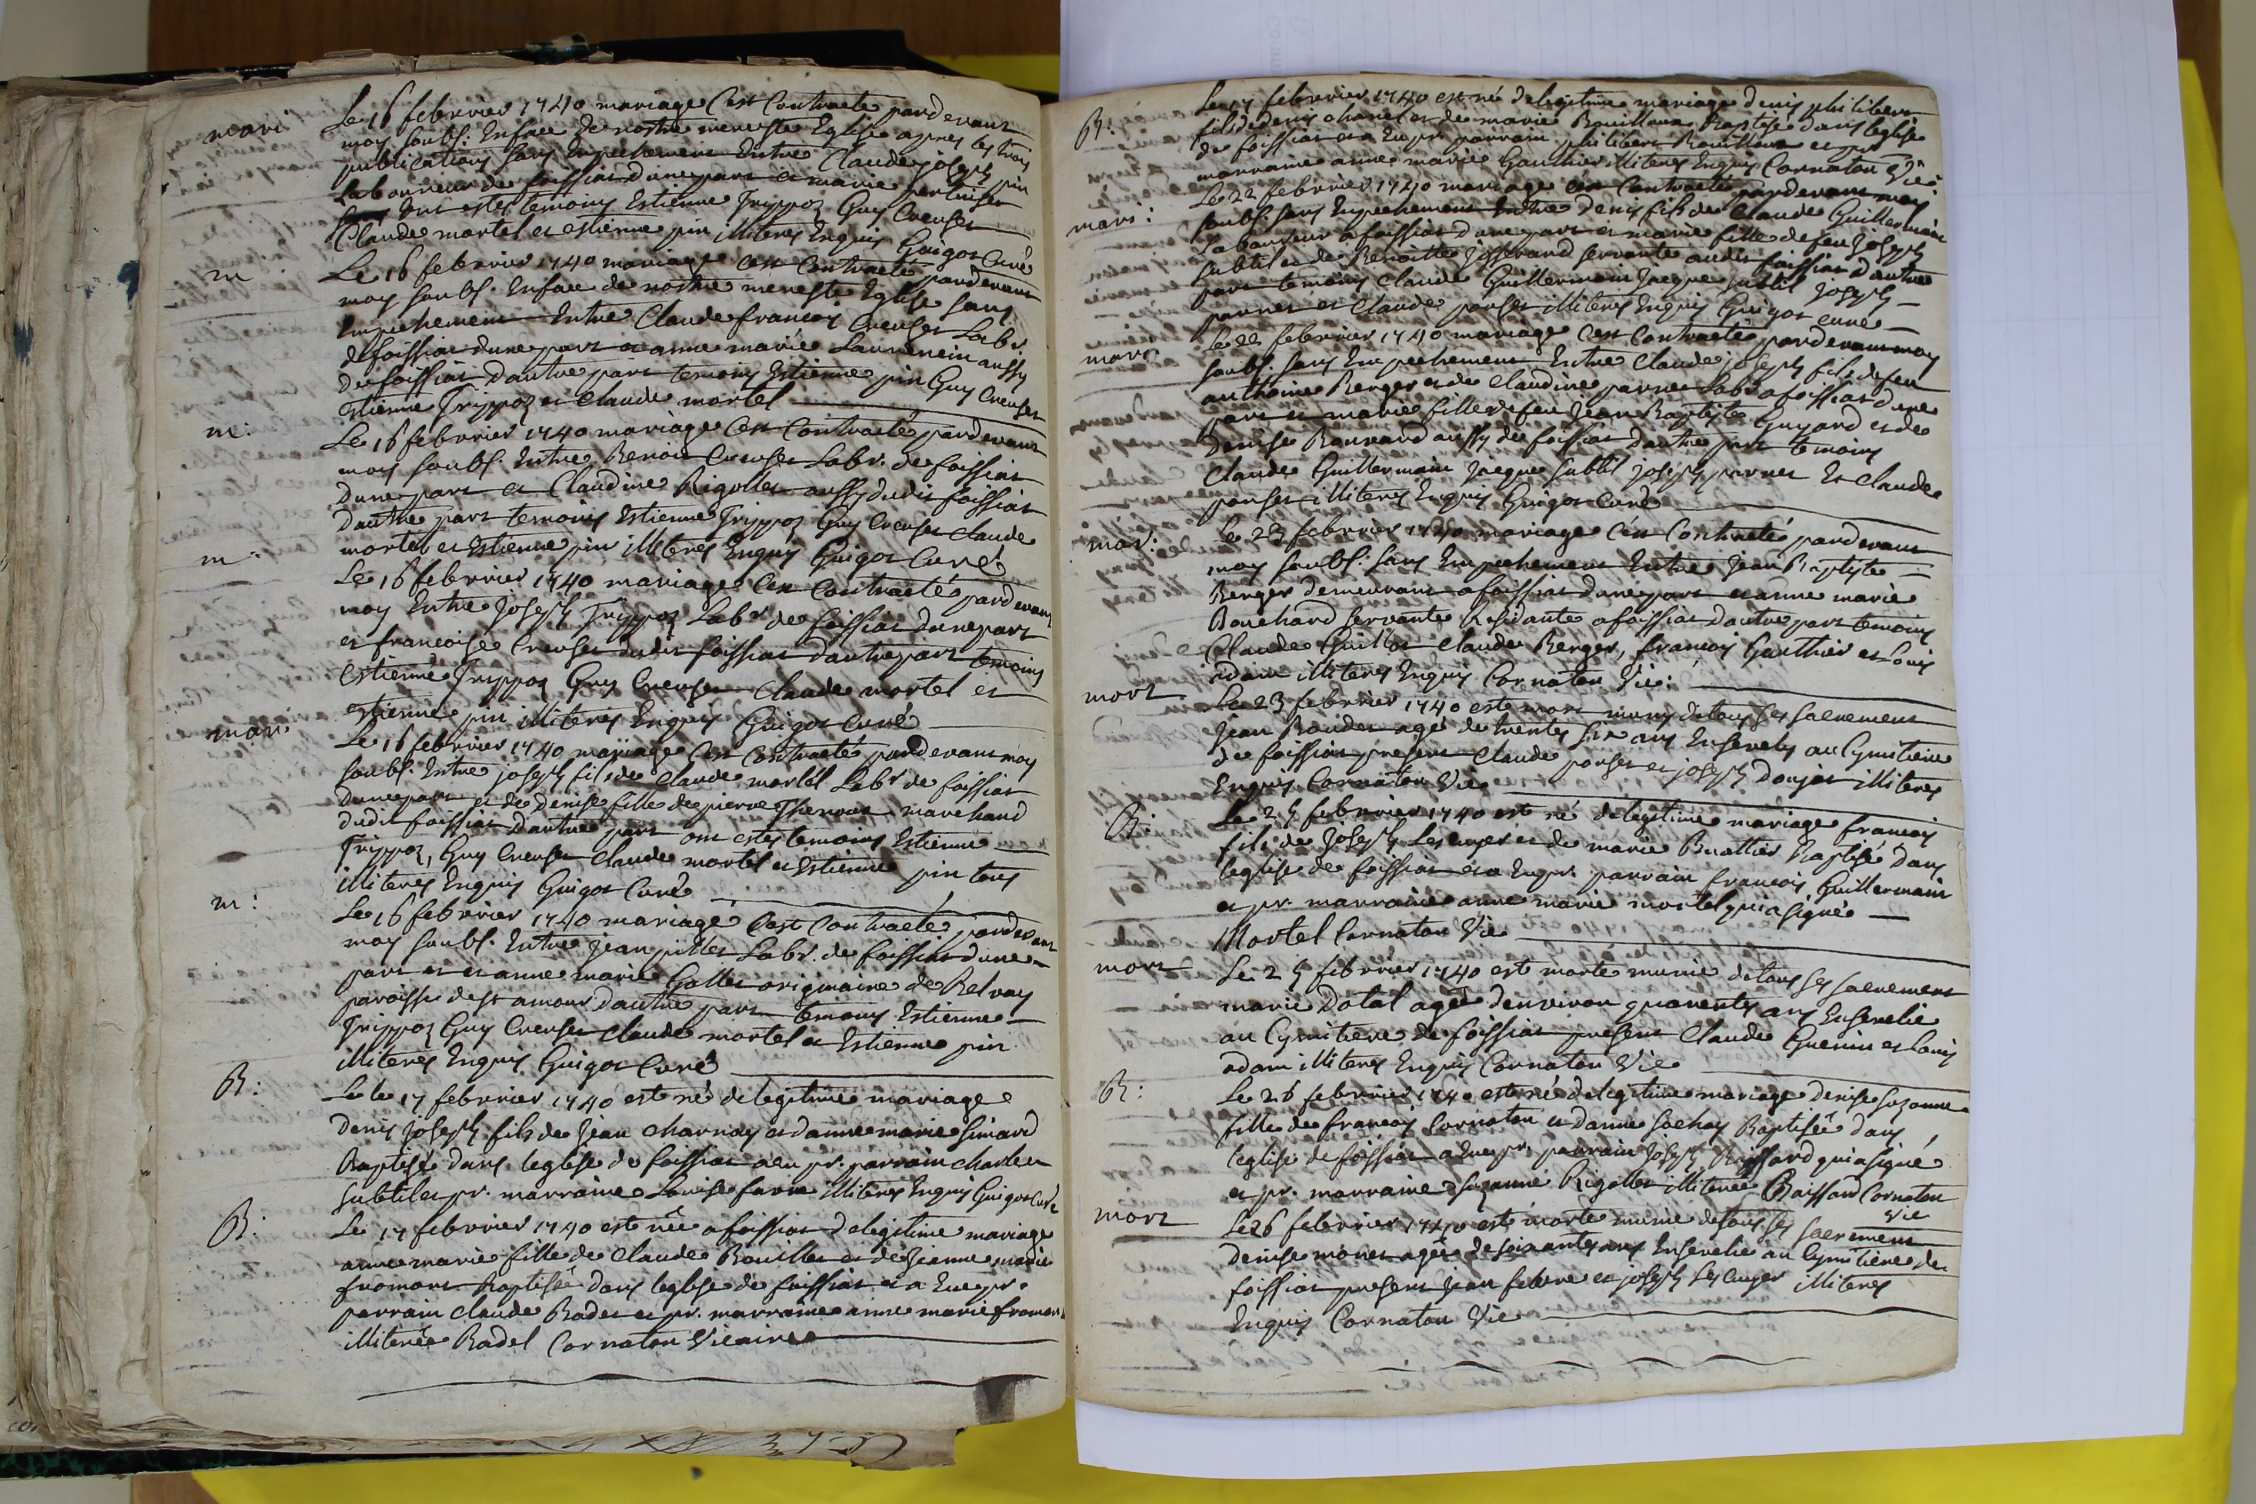 mari
Le 16 febvrier 1740 mariage C'est Contracté pardevant
moy soubs. Enface de nostre mere Ste Eglise apres les trois
publications sans Empechement Entre Claude joseph pin
Laboureur de foissiat d'une part et marie pertuiset
ont estes temoins Estienne Trippoz Guy Creuset
Claude martel et estienne pin illiteres Enquis Guigot Curé
m
Le 16 febvrier 1740 mariage C'est Contracté pardevant
moy soubs. Enface de nostre mere Ste Eglise sans
Empechement Entre Claude francois Creuset Labr
de foissiat d'une part et anne marie Laurencin aussy
de foissiat d'autre part temoins Estienne pin Guy Creuset
estienne Trippoz et Claude mortel
m:
Le 16 febvrier 1740 mariage C'est Contracté pardevant
moy soubs. Entre Benoit Creuset Labr. de foissiat
d'une part et Claudine Rigollet aussy dudit foissiat
d'autre part temoins Estienne Trippoz Guy Creuset Claude
mortel et Estienne pin illiteres Enquis Guigot Curé
m:
Le 16 febvrier 1740 mariage C'est Contracté pardevant
moy Entre Joseph Trippoz Labr de foissiat d'une part
et francoise Creuset dudit foissiat d'autre part temoins
Estienne Trippoz Guy Creuset Claude mortel et
estienne pin illiteres Enquis Guigot Curé
mari
Le 16 febvrier 1740 mariage C'est Contracté pardevant moy
soubs. Entre joseph fils de Claude mortel Labr de foissiat
d'une part et de Denise fille de pierre Thevenot marchand
dudit foissiat d'autre part ont estes temoins Estienne
Trippoz, Guy Creuset Claude mortel et Estienne pin tous
illiteres Enquis Guigot Curé
m:
Le 16 febvrier 1740 mariage C'est Contracté pardevant
moy soubs. Entre Jean pillet Labr. de foissiat d'une
part et et anne marie Gallet originaire de Belvay
paroisse de st amour d'autre part temoins Estienne
Trippoz Guy Creuset Claude mortel et Estienne pin
illiteres Enquis Guigot Curé
B:
Le le 17 febvrier 1740 est né de legitime mariage
Denis joseph fils de Jean Charnay et d'anne marie Simard
Baptisé dans l'eglise de foissiat a eu pr. parrain charles
subtil et pr. marraine Louise favre illiteres Enquis Guigot Curé
B:
Le 17 febvrier 1740 est née a foissiat de legitime mariage
anne marie fille de Claude Bouillet et de Jeanne marie
fromont Baptisée dans l'eglise de foissiat et a Eue pr.
parrain Claude Badel et pr. marraine anne marie fromont
illiterée Badel Cornaton Vicaire
B:
Le 17 febvrier 1740 est né de legitime mariage denis philibert
fils de denis chanel et de marie Bouilloux Baptisé dans l'eglise
de foissiat et a Eu pr. parrain philibert Bouilloux et pr
marraine anne marie Gauthier illiteres Enquis Cornaton Vie
mari:
Le 22 febvrier 1740 mariage C'est Contracté pardevant moy
soubs. sans Empechement Entre Denis fils de Claude Guillermain
Laboureur a foissiat d'une part et marie fille de feu Joseph
subtil et de Benoitte Josserand servante audit foissiat d'autre
part temoins Claude Guillermain Jacque subtil Joseph
parnet et Claude ponset illiteres Enquis Guigot curé
mari
Le 22 febvrier 1740 mariage C'est Contracté pardevant moy
soubs. sans Empechement Entre Claude joseph fils de feu
anthoine Berger et de Claudine parnet Labr a foissiat d'une
part et marie fille de feu Jean Baptiste Guyard et de
Denise Bouvard aussy de foissiat d'autre part temoins
Claude Guillermain Jacque subtil joseph parnet Et Claude
ponset illiteres Enquis Guigot Curé
mar:
Le 23 febvrier 1740 mariage C'est Contracté pardevant
moy soubs. sans Empechement Entre Jean Baptiste
Berger demeurant a foissiat d'une part et anne marie
Bouchard servante Residante a foissiat d'autre part temoins
Claude Guillot Claude Berger, francois Gauthier et Louis
adam illiteres Enquis Cornaton Vie.
mort
Le 23 febvrier 1740 est mort muny de tous ses sacrement
Jean Boudet agé de trente six ans Ensevely au Cymitiere
de foissiat present Claude ponset et joseph donjat illiteres
Enquis Cornaton Vie
B:
Le 25 febvrier 1740 est né de legitime mariage francois
fils de Joseph Lescuyer et de marie Buattier Baptisé dans
l'eglise de foissiat et a Eu pr. parrain francois Guillermain
et pr. marraine anne marie mortel qui a signé
Mortel Cornaton Vie
mort
Le 25 febvrier 1740 est morte munie de tous ses sacrement
marie Dotal agée d'environ quarente ans Ensevelie
au Cymitiere de foissiat present Claude Guerin et Louis
adam illiteres Enquis Cornaton Vie
B:
Le 26 febvrier 1740 est née de legitime mariage denise suzanne
fille de francois Cornaton et d'anne sochay Baptisée dans
l'eglise de foissiat a Eue pr. parrain Joseph Buissard qui a signé
et pr. marraine suzanne Rigollet illiterée Buissard Cornaton
vie
mort
Le 26 febvrier 1740 est morte munie de tous ses sacrement
denise monet agée de soixante ans Ensevelie au Cymitiere de
foissiat present Jean febvre et joseph Lescuyer illiteres
Enquis Cornaton Vie